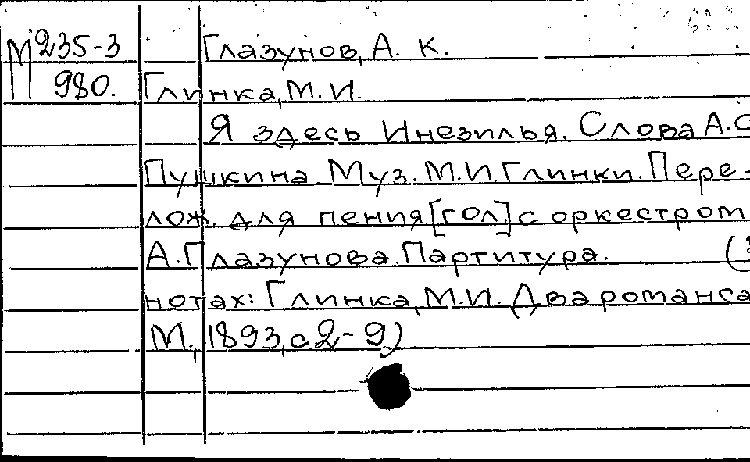 М 235-3 Глазунов, А. К.
980. Глинка, М.И.
Я здесь Инезилья. Слова А.С
Пушкина. Муз. М.И. Глинки. Пере-
лож. для пения [гол] с оркестром
А. Глазунова. Партитура. (
нотах: Глинка, М.И. Два романса
М., 1893, с 2-9)